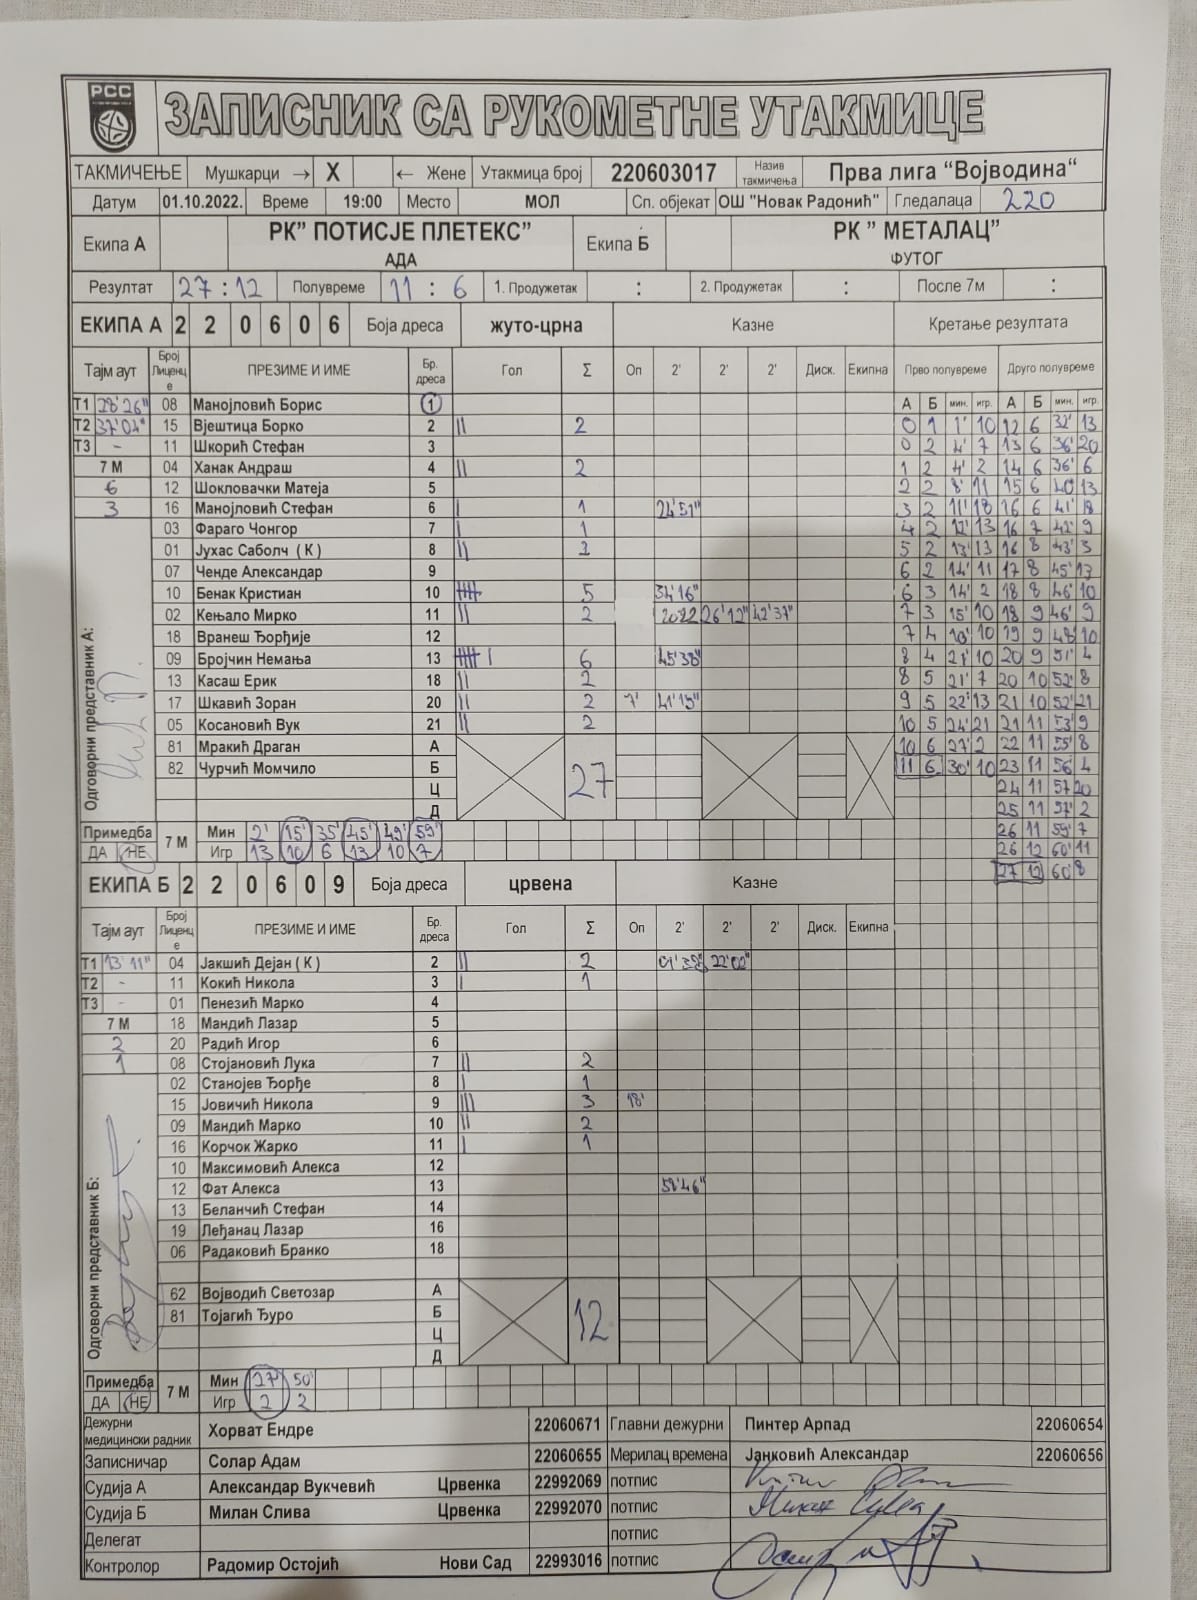 РСС
ЗАПИСНИК СА РУКОМЕТНЕ УТАКМИЦЕ
ТАКМИЧЕЊЕ Мушкарци → X ← Жене Утакмица број 220603017 Назив такмичења Прва лига “Војводина“
Датум 01.10.2022. Време 19:00 Место МОЛ Сп. објекат ОШ "Новак Радонић" Гледалаца 220
Екипа А РК” ПОТИСЈЕ ПЛЕТЕКС” АДА Екипа Б РК ” МЕТАЛАЦ” ФУТОГ
Резултат 27 : 12 Полувреме 11 : 6 1. Продужетак : 2. Продужетак : После 7м :
ЕКИПА А 2 2 0 6 0 6 Боја дреса жуто-црна Казне Кретање резултата
Тајм аут Број Лиценце ПРЕЗИМЕ И ИМЕ Бр. дреса Гол Σ Оп 2' 2' 2' Диск. Екипна Прво полувреме Друго полувреме
Т1 28'26" 08 Манојловић Борис 1 А Б мин. игр. А Б мин. игр.
Т2 37'04" 15 Вјештица Борко 2 || 2 0 1 1' 10 12 6 32' 13
Т3 - 11 Шкорић Стефан 3 0 2 4' 7 13 6 36' 20
7 М 04 Ханак Андраш 4 || 2 1 2 4' 2 14 6 36' 6
6 12 Шокловачки Матеја 5 2 2 8' 11 15 6 40' 13
3 16 Манојловић Стефан 6 | 1 24'51" 3 2 11' 18 16 6 41' 18
03 Фараго Чонгор 7 | 1 4 2 12' 13 16 7 42' 9
01 Јухас Саболч ( К ) 8 || 2 5 2 13' 13 16 8 43' 3
07 Ченде Александар 9 6 2 14' 11 17 8 45' 13
10 Бенак Кристиан 10 5 34'16" 6 3 14' 2 18 8 46' 10
02 Кењало Мирко 11 || 2 26'12" 42'37" 7 3 15' 10 18 9 46' 9
18 Вранеш Ђорђије 12 7 4 10 19 9 48' 10
09 Бројчин Немања 13 6 45'38" 8 4 21' 10 20 9 51' 4
13 Касаш Ерик 18 || 2 8 5 21' 7 20 10 52' 8
17 Шкавић Зоран 20 || 2 7' 41'15" 9 5 22' 13 21 10 52' 21
05 Косановић Вук 21 || 2 10 5 24' 21 21 11 53' 9
81 Мракић Драган А 27 10 6 27' 2 22 11 55' 8
82 Чурчић Момчило Б 11 6 30' 10 23 11 56' 4
Ц 24 11 57' 20
Д 25 11 57' 2
Одговорни представник А:
Примедба 7 М Мин 2' 15' 35' 45' 49' 59' 26 11 59' 7
ДА НЕ Игр 13 10 6 13 10 7 26 12 60' 11
ЕКИПА Б 2 2 0 6 0 9 Боја дреса црвена Казне 27 12 60' 8
Тајм аут Број Лиценце ПРЕЗИМЕ И ИМЕ Бр. дреса Гол Σ Оп 2' 2' 2' Диск. Екипна
Т1 13'11" 04 Јакшић Дејан ( К ) 2 || 2 22'02"
Т2 - 11 Кокић Никола 3 | 1
Т3 - 01 Пенезић Марко 4
7 М 18 Мандић Лазар 5
2 20 Радић Игор 6
1 08 Стојановић Лука 7 || 2
02 Станојев Ђорђе 8 | 1
15 Јовичић Никола 9 ||| 3 18'
09 Мандић Марко 10 || 2
16 Корчок Жарко 11 | 1
10 Максимовић Алекса 12
12 Фат Алекса 13 58'46"
13 Беланчић Стефан 14
19 Леђанац Лазар 16
06 Радаковић Бранко 18
62 Војводић Светозар А 12
81 Тојагић Ђуро Б
Ц
Д
Одговорни представник Б:
Примедба 7 М Мин 27' 50'
ДА НЕ Игр 2 2
Дежурни медицински радник Хорват Ендре 22060671 Главни дежурни Пинтер Арпад 22060654
Записничар Солар Адам 22060655 Мерилац времена Јанковић Александар 22060656
Судија А Александар Вукчевић Црвенка 22992069 потпис
Судија Б Милан Слива Црвенка 22992070 потпис
Делегат потпис
Контролор Радомир Остојић Нови Сад 22993016 потпис